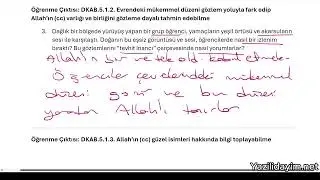 Öğrenme Çıktısı: DKAB.5.1.2. Evrendeki mükemmel düzeni gözlem yoluyla fark edip
Allah'ın (cc) varlığı ve birliğini gözleme dayalı tahmin edebilme
3. Dağlık bir bölgede yürüyüş yapan bir grup öğrenci, yamaçların yeşil örtüsü ve akarsuların
sesi ile karşılaştı. Doğanın bu eşsiz görüntüsü ve sesi, öğrencilerde nasıl bir izlenim
bıraktı? Bu gözlemlerini "tevhit inancı" çerçevesinde nasıl yorumlarlar?
Allah'ın bir ve tek old. kabul etmek
Öğrenciler çevrelerindeki mükemmel
düzeni görür ve bu düzeni
yaratan Allah'ı tanırlar
Öğrenme Çıktısı: DKAB.5.1.3. Allah'ın (cc) güzel isimleri hakkında bilgi toplayabilme
Yazilidayim.net